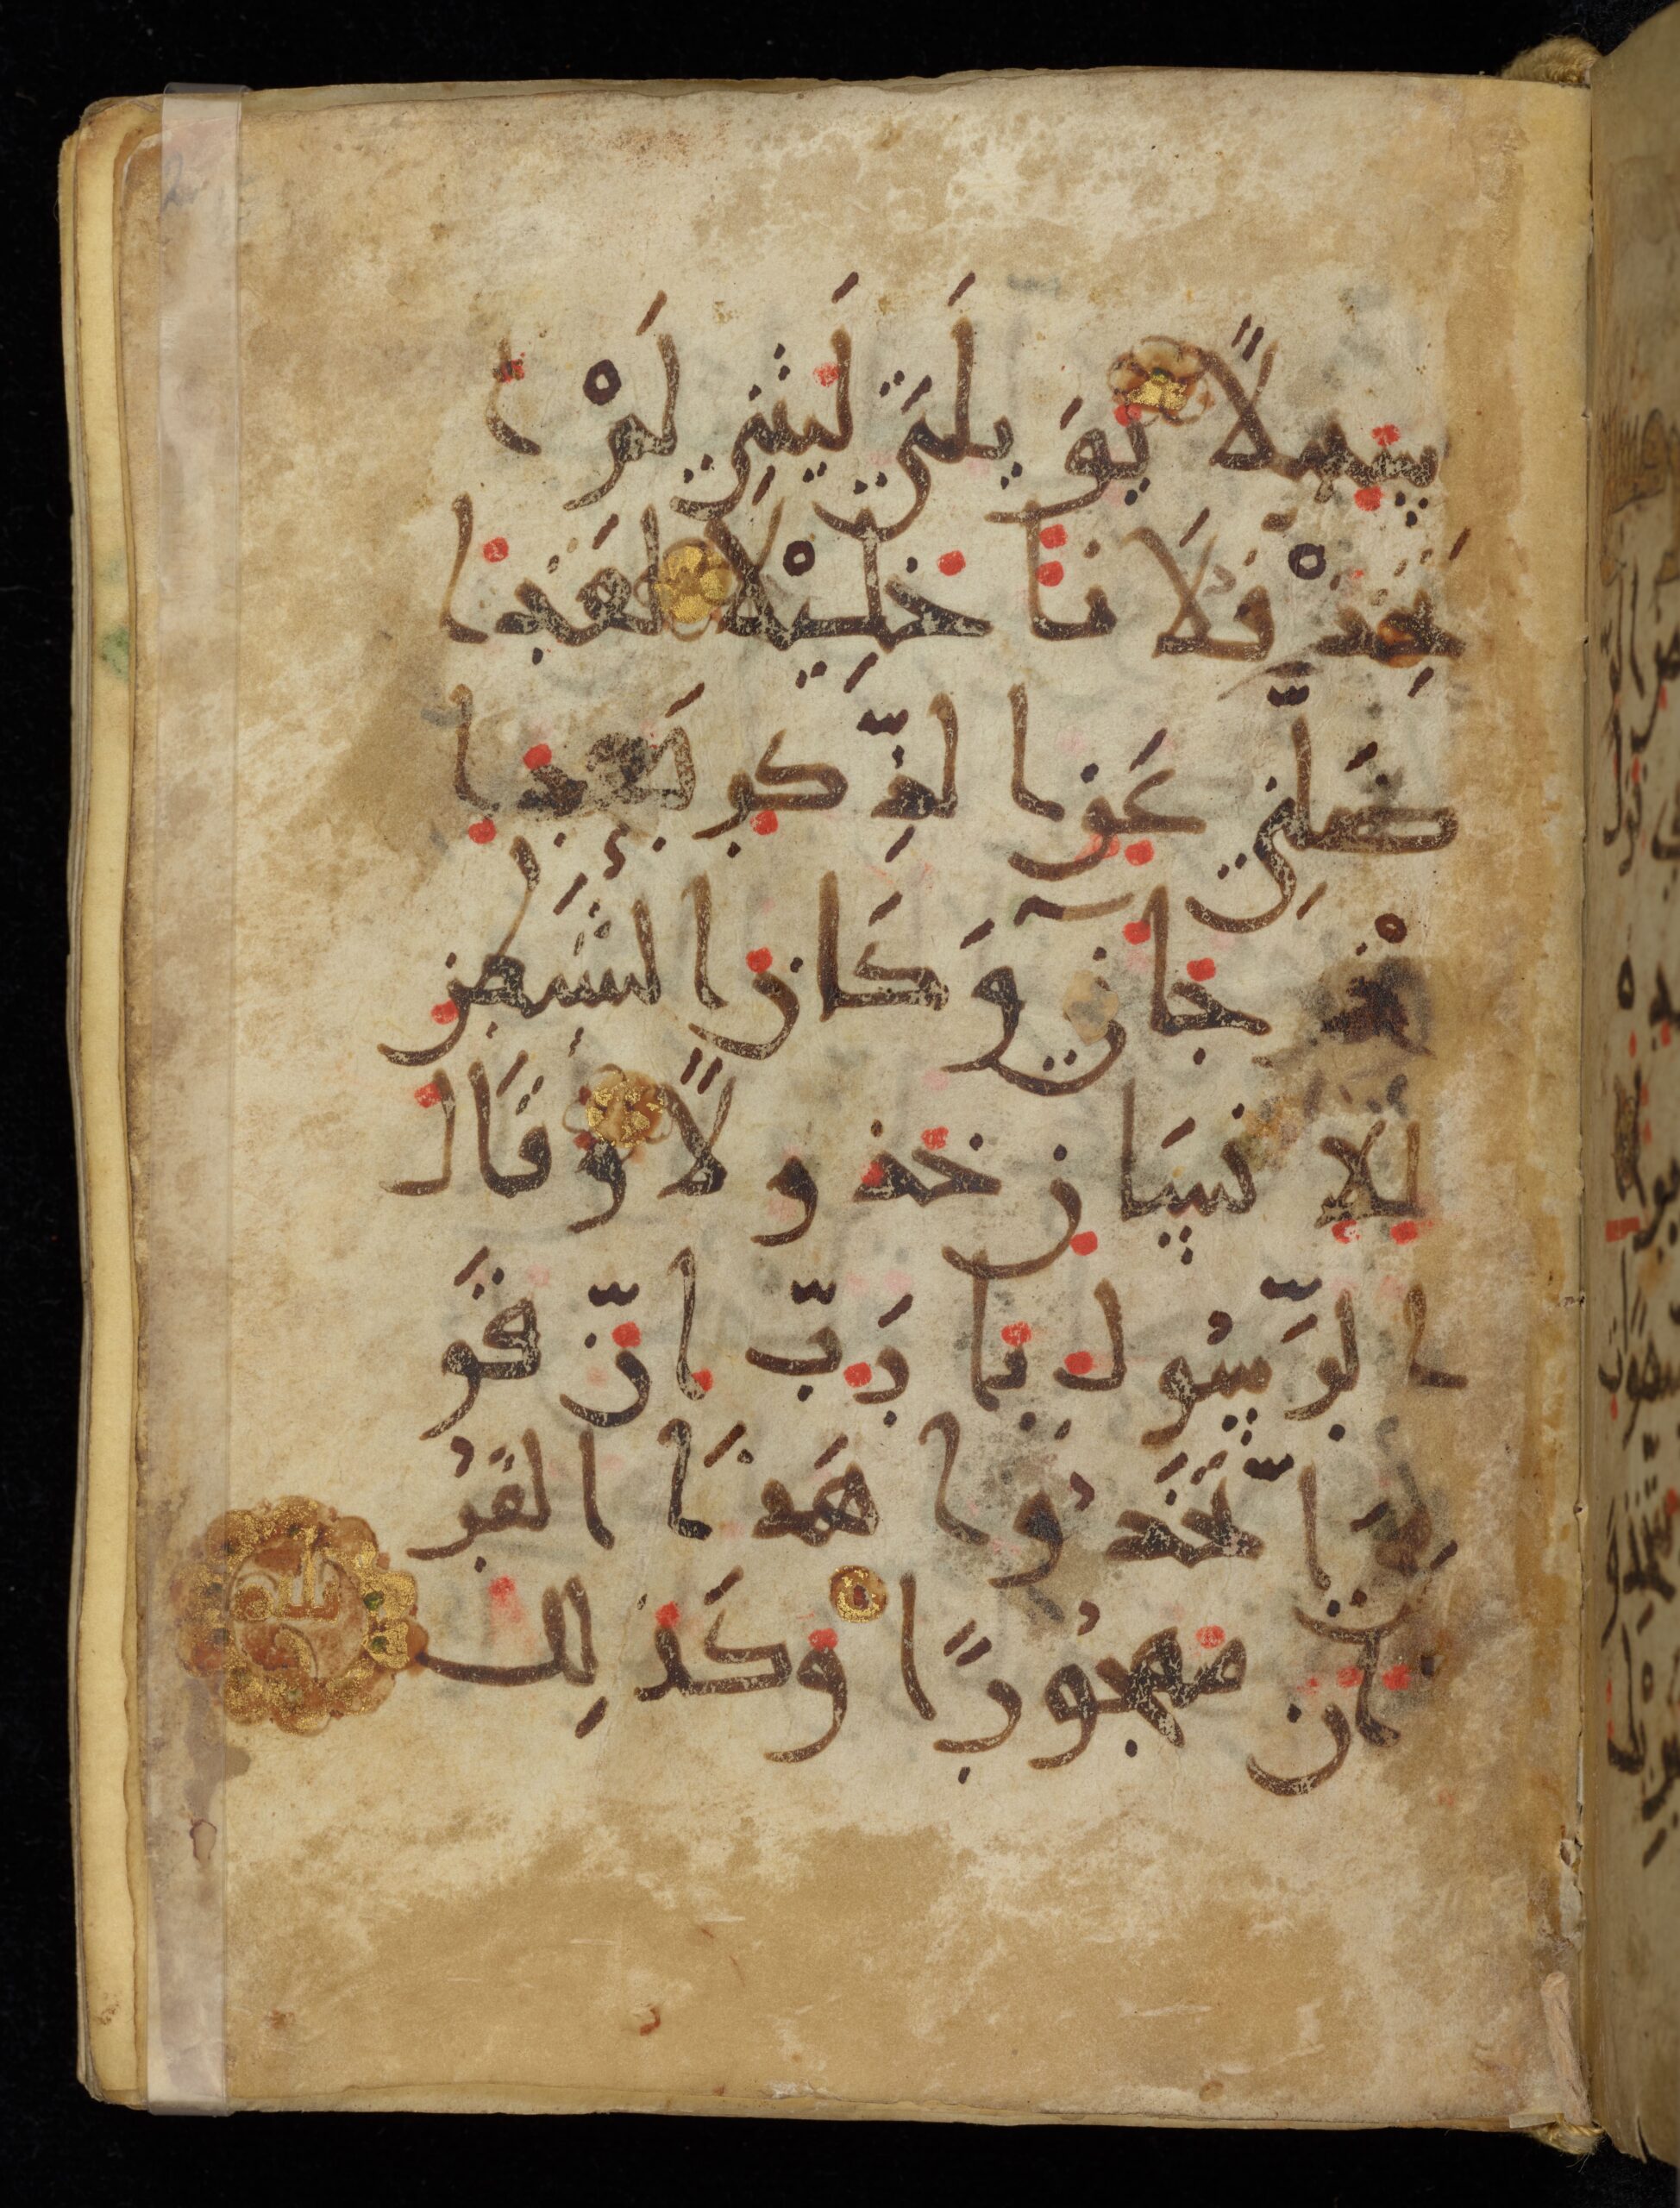 سبِيلًا يَوَيلَتَى لَيتَنِي لَمْ ا
تَّخِذْ فُلَانًا خَلِيْلًا لَقَد ا
ضَلَّنِي عَنِ الذِّكرِ بَعدَ إِ
ذْ جَآنِي وَكَانَ الشَّيطَنُ
لِلإِنسَانِ خَذُولًا وَقَالَ
الرَّسُولُ يَا رَبِّ إِنَّ قَو
مِي اتَّخَذُوا هَذَا القُر
آنَ مَهجُورًا وَكَذَلِك